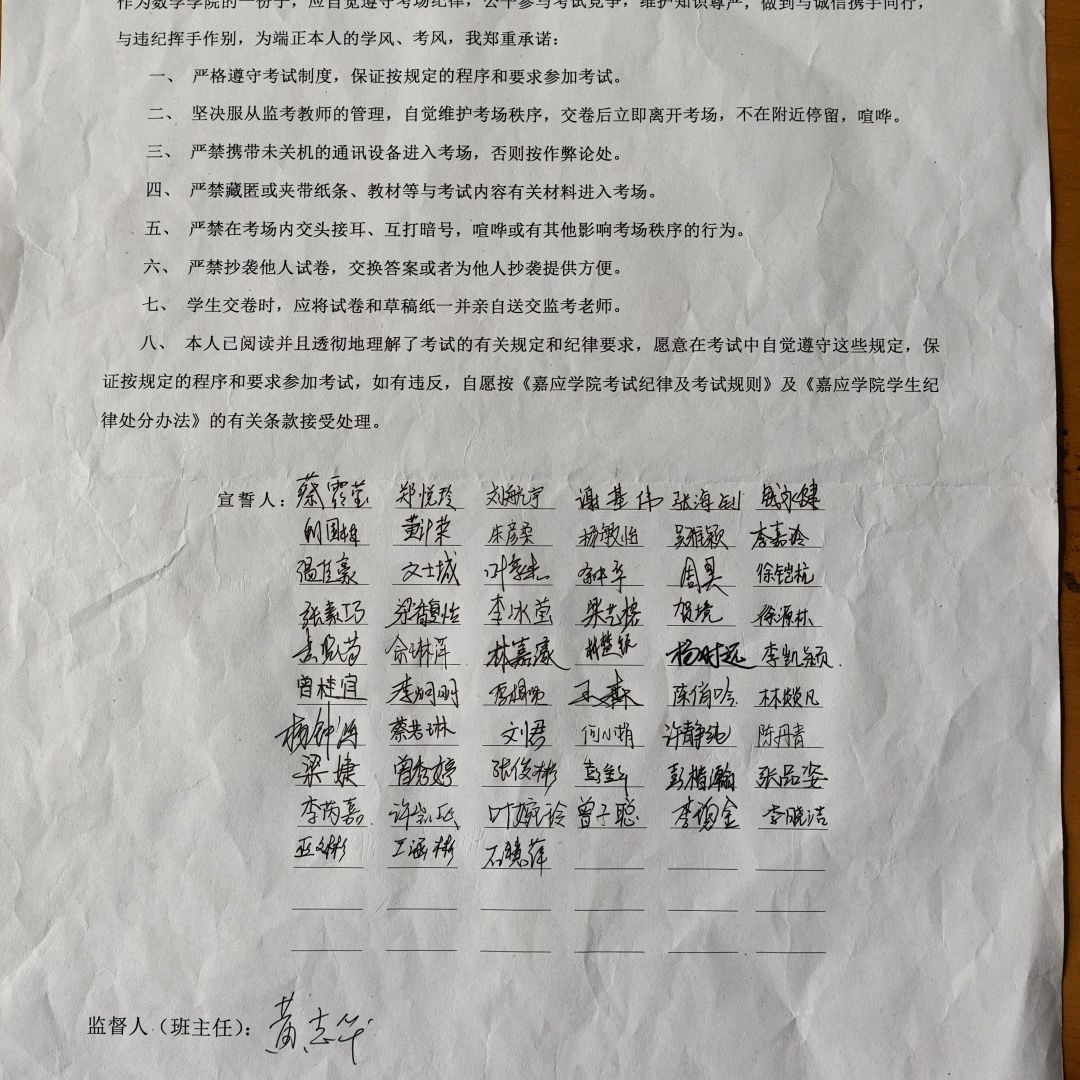 作为数学学院的一份子，应自觉遵守考场纪律，公平参与考试竞争，维护知识尊严，做到与诚信携手同行，
与违纪挥手作别，为端正本人的学风、考风，我郑重承诺：
一、 严格遵守考试制度，保证按规定的程序和要求参加考试。
二、 坚决服从监考教师的管理，自觉维护考场秩序，交卷后立即离开考场，不在附近停留，喧哗。
三、 严禁携带未关机的通讯设备进入考场，否则按作弊论处。
四、 严禁藏匿或夹带纸条、教材等与考试内容有关材料进入考场。
五、 严禁在考场内交头接耳、互打暗号，喧哗或有其他影响考场秩序的行为。
六、 严禁抄袭他人试卷，交换答案或者为他人抄袭提供方便。
七、 学生交卷时，应将试卷和草稿纸一并亲自送交监考老师。
八、 本人已阅读并且透彻地理解了考试的有关规定和纪律要求，愿意在考试中自觉遵守这些规定，保
证按规定的程序和要求参加考试，如有违反，自愿按《嘉应学院考试纪律及考试规则》及《嘉应学院学生纪
律处分办法》的有关条款接受处理。
宣誓人：蔡霈莹 郑悦玲 刘航宇 谢基伟 张海钊
朱彦柔 杨敏怡 吴雅颖 李嘉玲
温佳豪 文士城 徐铠杭
张嘉巧 梁馥怡 李冰莹 梁艺榕 贺境 徐源林
余琳萍 林嘉濠 杨时远 李凯颖
曾桂宜 李炯明 陈俏吟
杨钟海 蔡若琳 文君 何小娟 许静纯 陈丹青
梁婕 曾秀婷 张俊彬 彭楷瀚 张品姿
李芮嘉 叶婉玲 曾子聪 李晓洁
巫文彬 江涵彬 石慧萍
监督人（班主任）：黄志华